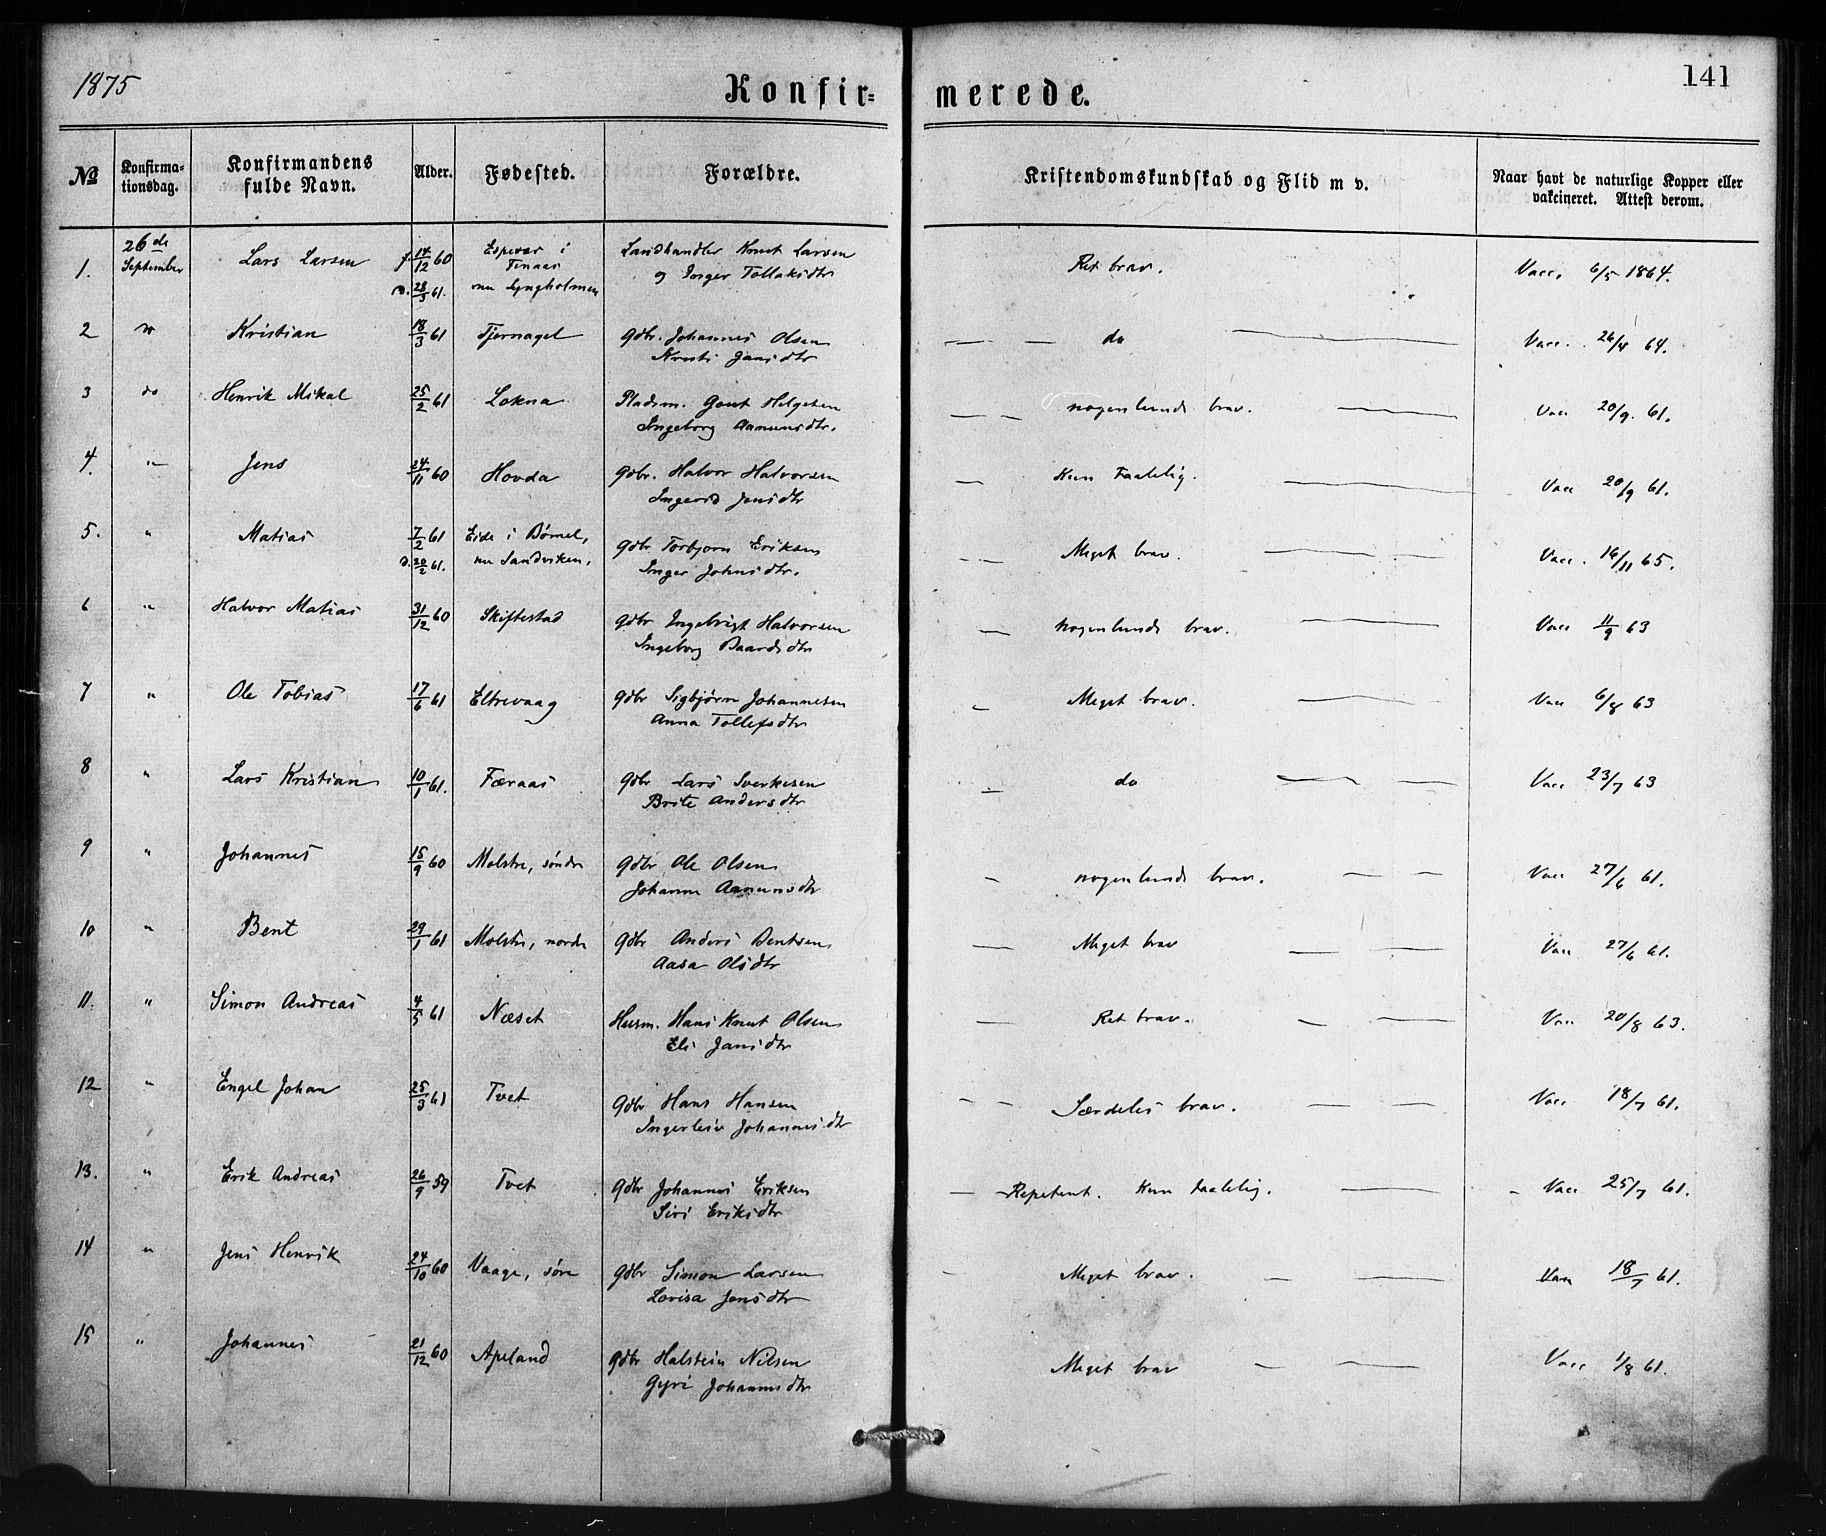 1875
Konfir=
merede.
141
No
Konfirma-
tionsdag.
Konfirmandens
fulde Navn.
Alder.
Fødested.
Forældre.
Kristendomskundskab og Flid m v.
Naar havt de naturlige Kopper eller
vakcineret. Attest derom.
1. 26de September Lars Larsen f. 14/12 60 d. 28/3 61. Espevær i Finaas nu Lyngholmen Landhandler Knut Larsen
og Inger Tollaksdtr Ret brav. Vacc. 6/5 1864.
2 Kristian 18/3 61 Tjernagel Gdbr. Johannes Olsen
Jansdtr — — do — Vacc. 26/4 64.
3 do Henrik Mikal 25/2 61 Lokna Pladsm. Gaut Helgesen
Ingeborg Aamunsdtr. — — nogenlunde brav. — Vacc 20/9. 61.
4. " Jens 24/11 60 Hovda Gdbr. Halvor Halvorsen
Jensdtr — Kun taalelig. — — Vacc 20/9 61.
5. " Matias 7/2 61 d. 20/2 61. Eide i Bømel, nu Sandviken, Gdbr Torbjørn Eriksen
Inger Johnsdtr. — — Meget brav. — — Vacc. 16/11 65.
6 " Halvor Matias 31/12 60 Skiftestad Gdbr Ingebrigt Halvorsen
Ingeborg Baardsdtr — Nogenlunde brav. — Vacc 11/9 63
7 " Ole Tobias 17/6 61 Eltrevaag Gdbr Sigbjørn Johannesen
Anna Tollefsdtr — Meget brav. — Vacc 6/8 63
8 " Lars Kristian 10/1 61. Færaas Gdbr Lars Sverkesen
Brite Andersdtr — do — — Vacc 23/7 63
9 " Johannes 15/9 60 Molstre, søndre Gdbr Ole Olsen
Johanna Aamunsdtr — nogenlunde brav. — — Vacc 27/6 61.
10 " Bent 29/1 61 Molstre, nordre Gdbr Anders Bentsen
Aasa Olsdtr — Meget brav — — Vacc 27/6 61.
11. " Simon Andreas 4/5 61 Næset Husm. Hans Knut Olsen
Eli Jansdtr — Ret brav. — — Vacc 20/8 63.
12 " Engel Johan 25/3 61 Tvet Gdbr Hans Hansen
Johannesdtr — — Særdeles brav. — — Vacc 18/7 61.
13. " Erik Andreas 26/9 59 Tvet Gdbr Johannes Eriksen
Siri Eriksdtr — Repetent. Kun taalelig. — Vacc 25/7 61.
14 " Jens Henrik 24/10 60 Vaage, søre Gdbr Simon Larsen
Lovisa Jensdtr — Meget brav. — — Vacc 18/7 61.
15 " Johannes 21/12 60 Apeland Gdbr Halstein Nilsen
Gyri Johannesdtr Meget brav — — Vacc 1/8 61.